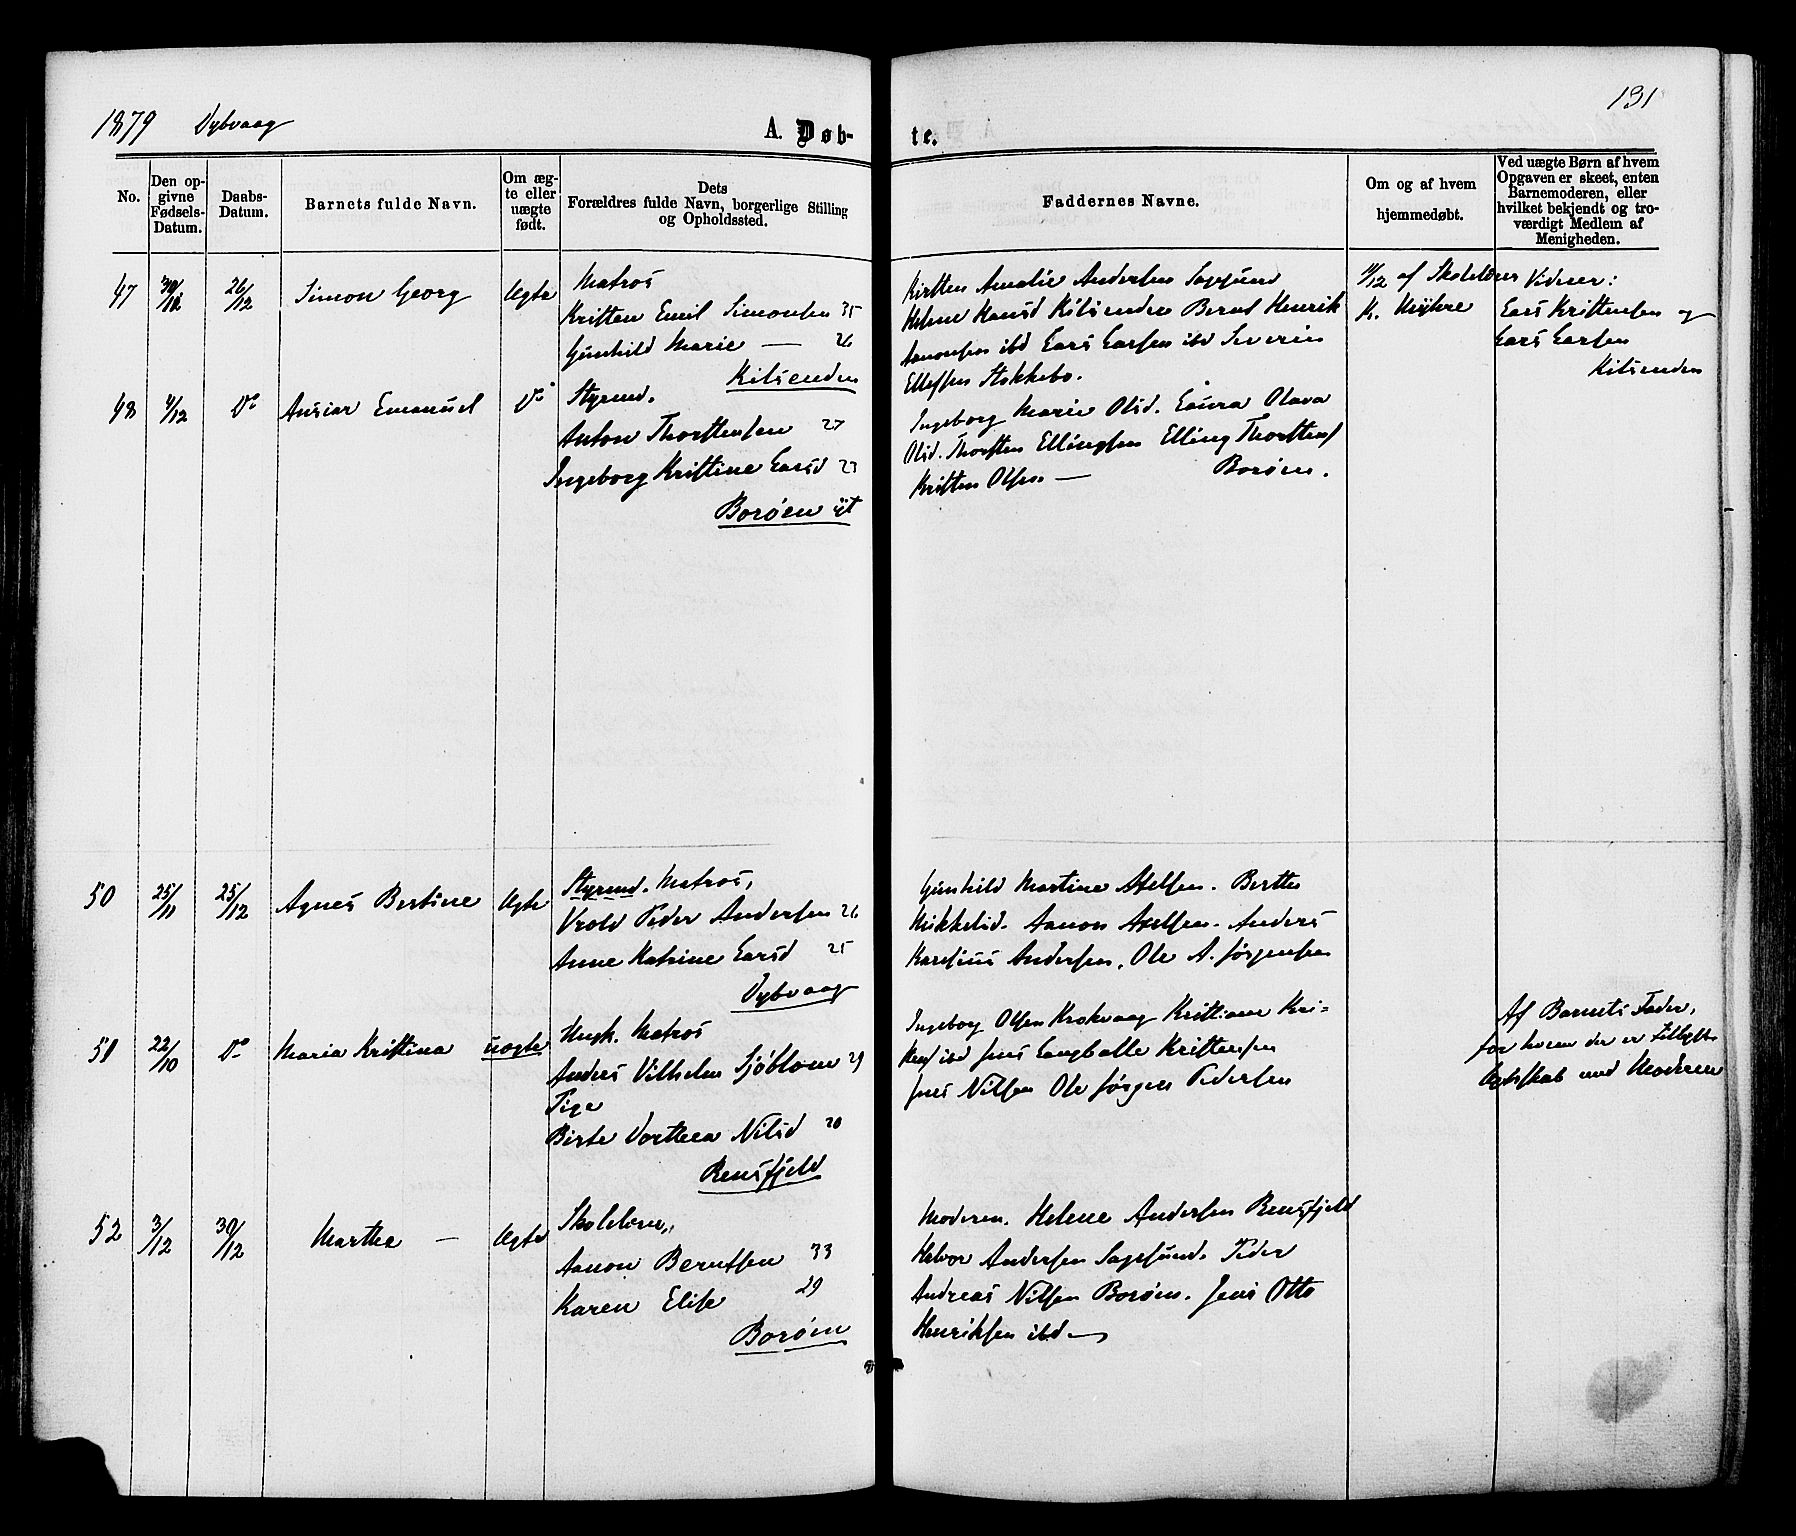 1879 Dybvaag
A. Døb-
te.
131
No.
Den op-
givne
Fødsels-
Datum.
Daabs-
Datum.
Barnets fulde Navn.
Om æg-
te eller
uægte
født.
Dets
Forældres fulde Navn, borgerlige Stilling
og Opholdssted.
Faddernes Navne.
Om og af hvem
hjemmedøbt.
Ved uægte Børn af hvem
Opgaven er skeet, enten
Barnemoderen, eller
hvilket bekjendt og tro-
værdigt Medlem af
Menigheden.
47
26/12
Simon Georg
Ægte
Matros
Kristen Emil Simonsen 35
Gunhild Marie — 26
Kilsenden
Kirsten Amalie Andersen Sagesund
Helene Hansd Kilsenden Bernt Henrik
Aanonsen ibd Lars Larsen ibd Severin
Ellefsen Stokkebo.
11/12 af Skolelærer
K.
Vidner:
Lars Kristensen og
Lars Larsen
Kilsenden
48
4/12
Do
Ansiar Emanuel
Do
Styrmd.
Anton Thorstensen 27
Ingeborg Kristine Larsd 23
Borøen yt
Ingeborg Marie Olsd. Laura Olava
Olsd. Thorsten Ellingsen Elling Thorstens
Kristen Olsen — Borøen.
50
25/11
25/12
Agnes Bertine
Ægte
Styrmd. Matros,
Vrold Peder Andersen 26
Anne Katrine Larsd 25
Dybvaag
Gunhild Martine Axelsen. Berthe
Mikkelsd. Aanon Axelsen. Anders
Karelius Andersen. Ole A. Jørgensen
51
22/10
Do
Maria Kristina
uægte
Ungk. Matros
Anders Vilhelm Sjöblom 29
Pige
Birte Dorthea Nilsd 20
Rensfjeld
Ingeborg Olsen Krokvaag Kristiane Kri-
stens ibd Jens Langballe Kristensen
Jens Nilsen Ole Jørgen Pedersen
Af Barnets Fader,
for hvem der er tillyst
Ægteskab med Moderen
52
3/12
30/12
Marthea —
Ægte
Skolelærer,
Aanon Berntsen 33
Karen Elise 29
Borøen
Moderen. Helene Andersen Rensfjeld
Halvor Andersen Sagesund. Peder
Andreas Nilsen Borøen. Jens Otto
Henriksen ibd —